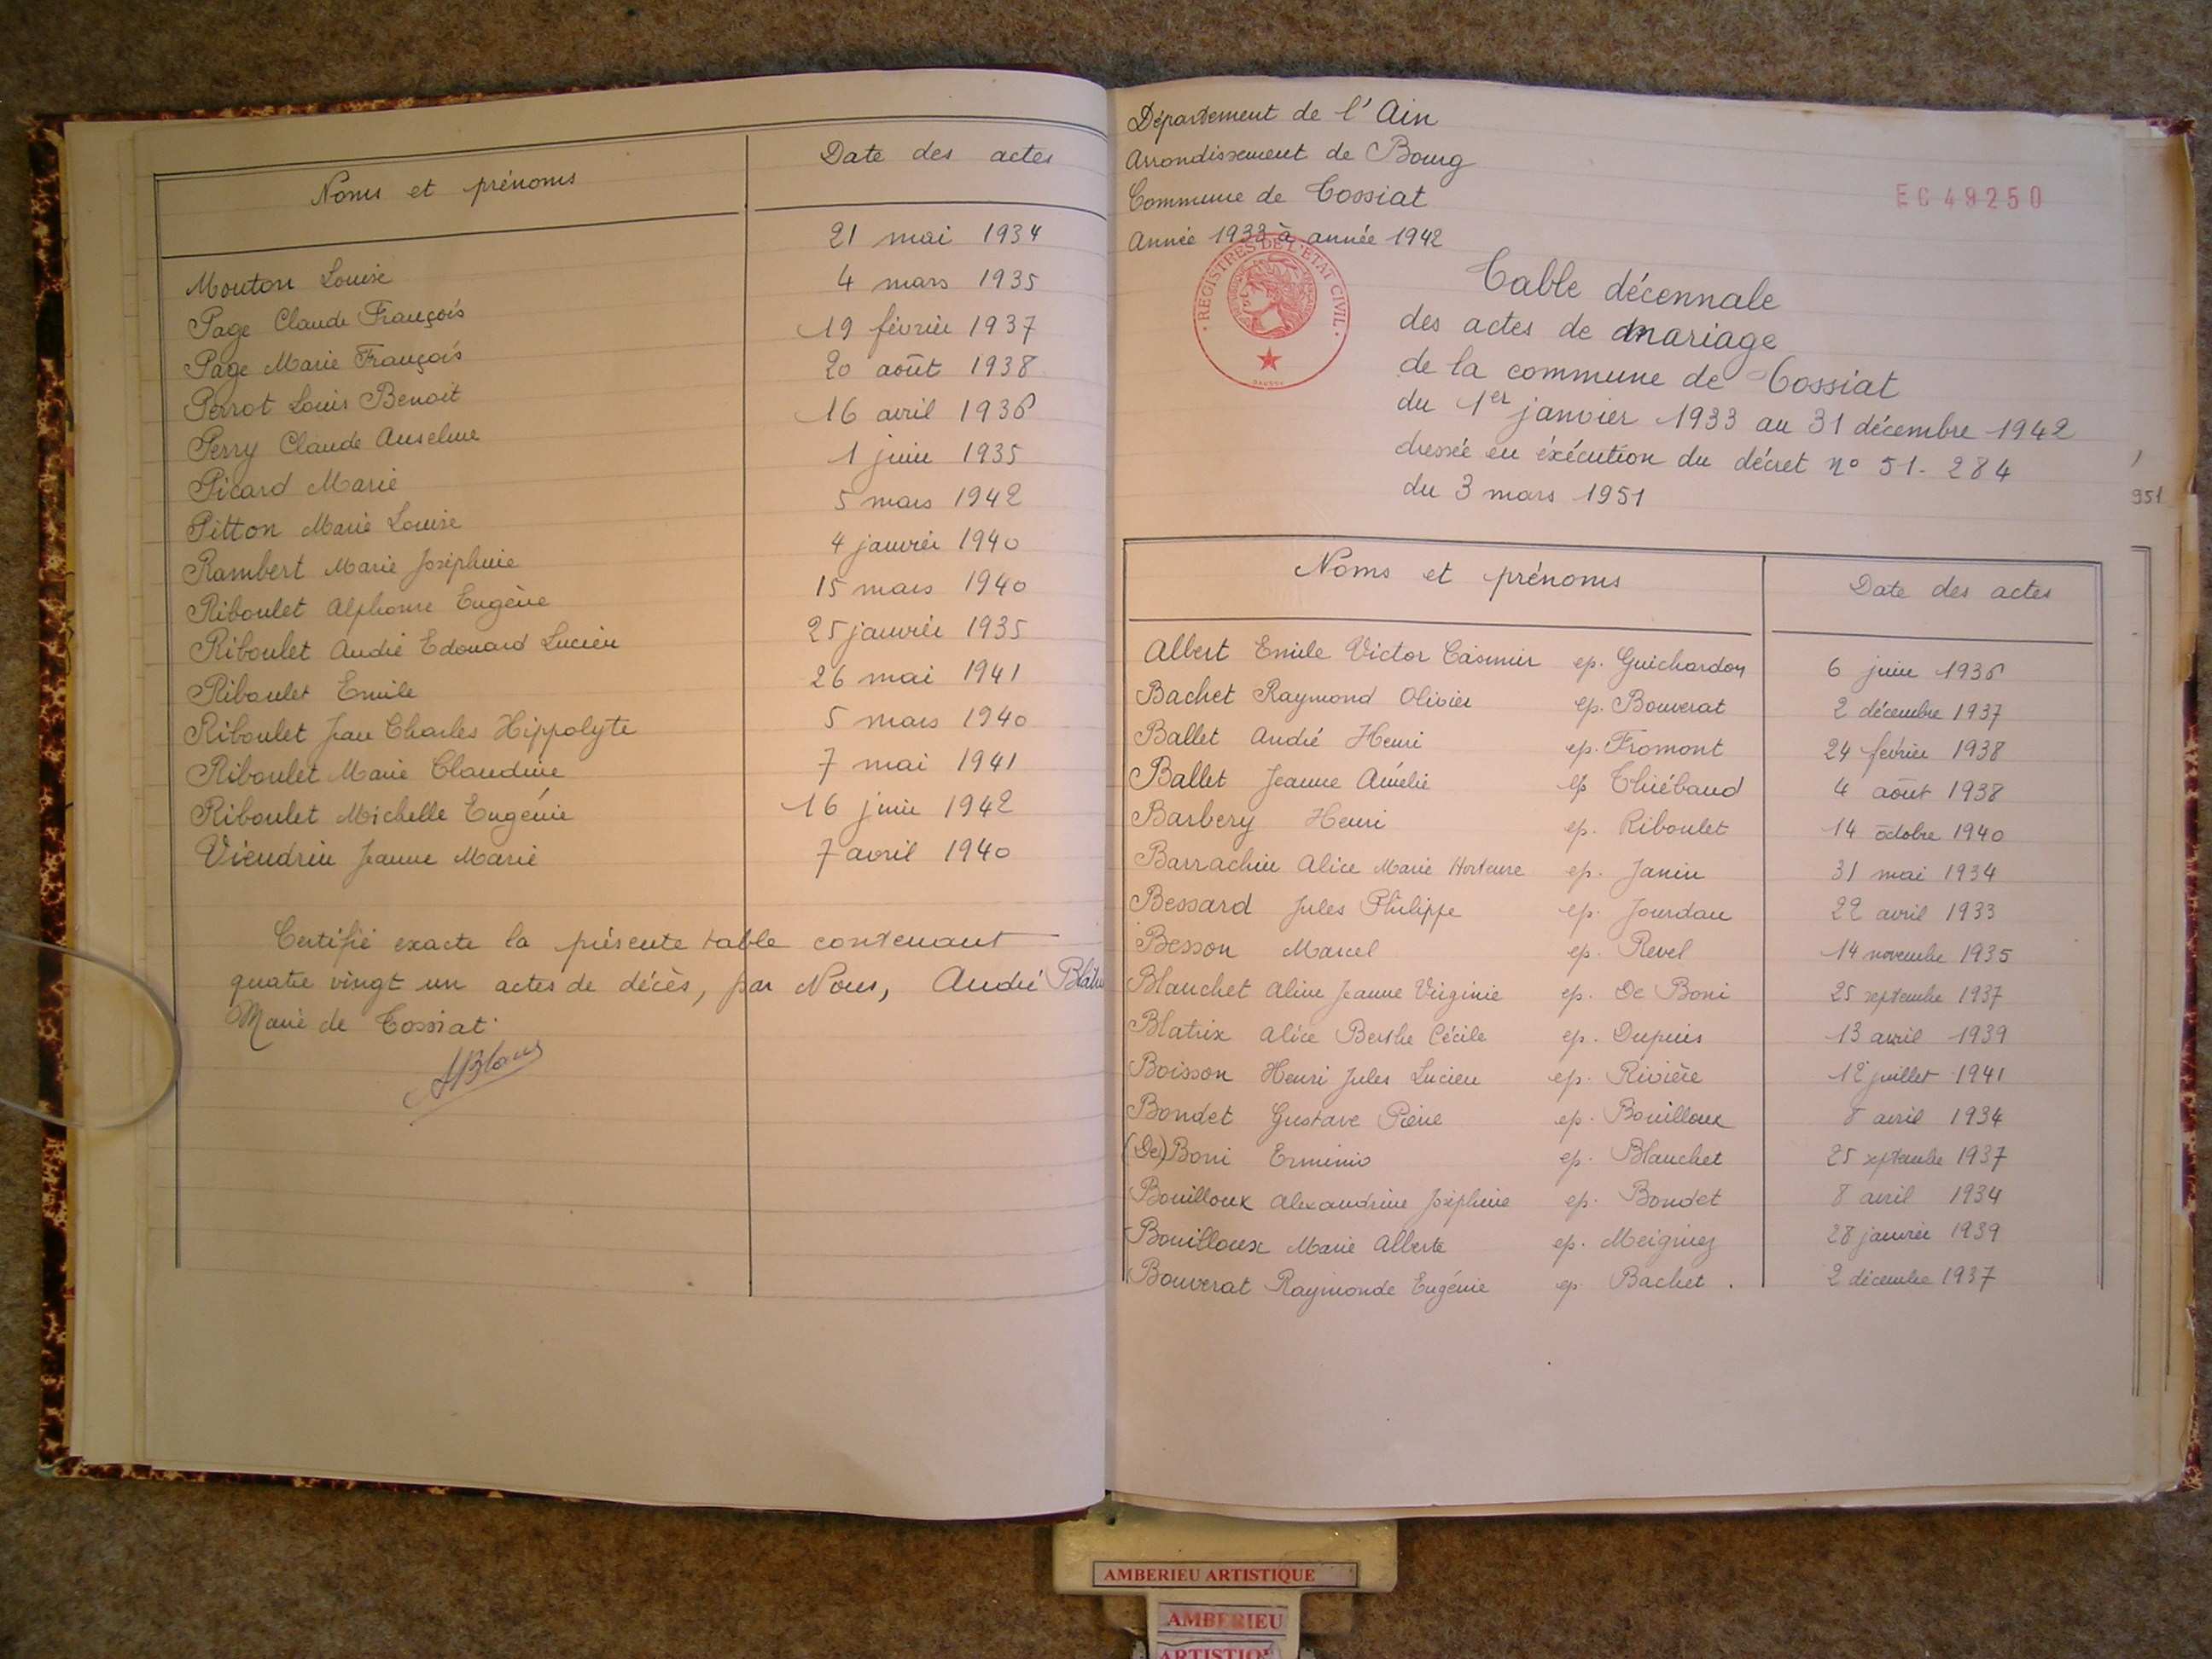 Noms et prénoms Date des actes
Mouton Louise 21 mai 1934
Page Claude François 4 mars 1935
Page Marie François 19 février 1937
Perrot Louis Benoit 20 août 1938
Perry Claude Anselme 16 avril 1936
Picard Marie 1 juin 1935
Pitton Marie Louise 5 mars 1942
Rambert Marie Joséphine 4 janvier 1940
Riboulet Alphonse Eugène 15 mars 1940
Riboulet André Edouard Lucien 25 janvier 1935
Riboulet Emile 26 mai 1941
Riboulet Jean Charles Hippolyte 5 mars 1940
Riboulet Marie Claudine 7 mai 1941
Riboulet Michelle Eugénie 16 juin 1942
Viendrin Jeanne Marie 7 avril 1940
Certifié exacte la présente table contenant
quatre vingt un actes de décès, par Nous, André
Maire de Tossiat
Département de l'Ain
Arrondissement de Bourg
Commune de Tossiat
Année 1933 à année 1942
EC49250
REGISTRES DE L'ETAT CIVIL
Table décennale
des actes de mariage
de la commune de Tossiat
du 1er janvier 1933 au 31 décembre 1942
dressée en éxécution du décret n° 51-284
du 3 mars 1951
951
Noms et prénoms Date des actes
Albert Emile Victor Casimir ep. Guichardon 6 juin 1936
Bachet Raymond Olivier ep. Bouverat 2 décembre 1937
Ballet André Henri ep. Fromont 24 février 1938
Ballet Jeanne Amélie ep Thiébaud 4 août 1938
Barbery Henri ep. Riboulet 14 octobre 1940
Barrachin Alice Marie Hortense ep. Janin 31 mai 1934
Bessard Jules Philippe ep. Jourdan 22 avril 1933
Besson Marcel ep. Revel 14 novembre 1935
Blanchet Aline Jeanne Virginie ep. De Boni 25 septembre 1937
Blatrix Alice Berthe Cécile ep. Dupuis 13 avril 1939
Boisson Henri Jules Lucien ep. Rivière 12 juillet 1941
Bondet Gustave Pierre ep. Bouilloux 8 avril 1934
(De) Boni Erminio ep. Blanchet 25 septembre 1937
Bouilloux Alexandrine Joséphine ep. Bondet 8 avril 1934
Bouilloux Marie Alberte ep. Meigniez 28 janvier 1939
Bouverat Raymonde Eugénie ep Bachet. 2 décembre 1937
AMBERIEU ARTISTIQUE
AMBERIEU